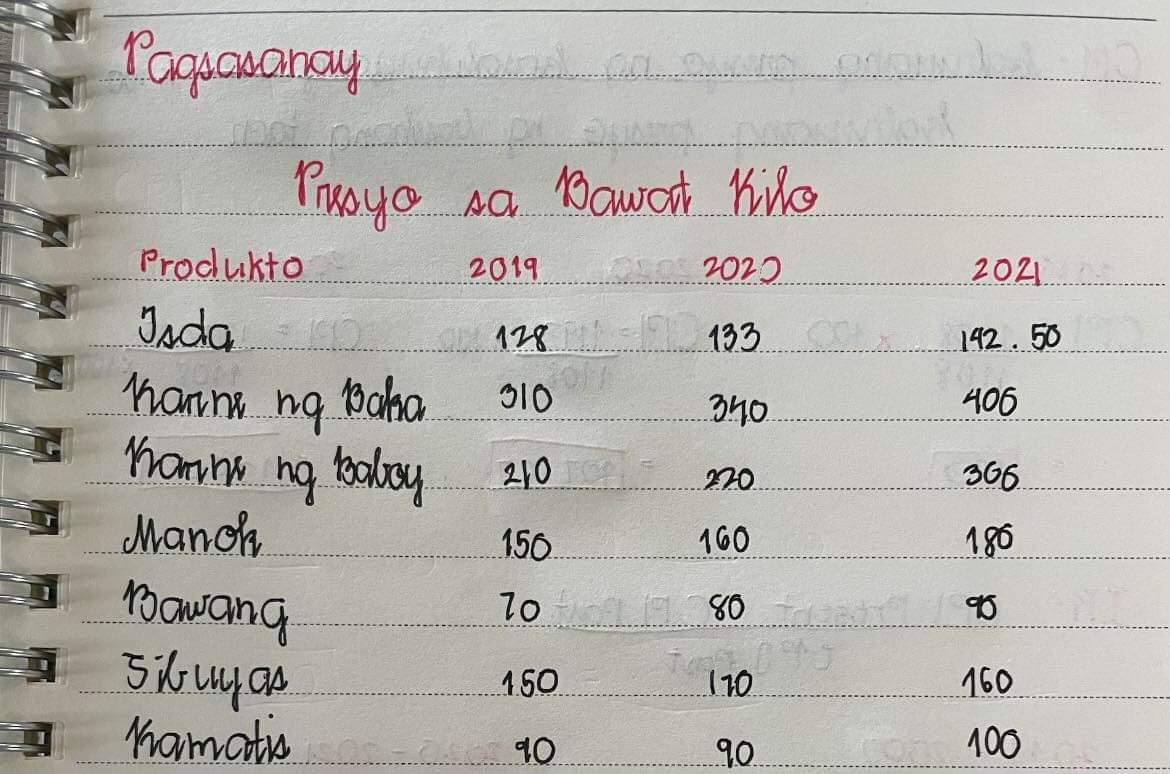 Pagsasanay
Presyo sa Bawat Kilo
Produkto 2019 2020 2021
Isda 128 133 142.50
Karne ng Baka 310 340 406
Karne ng Baboy 210 220 306
Manok 150 160 186
Bawang 70 80 90
Sibuyas 150 170 160
Kamatis 90 90 100